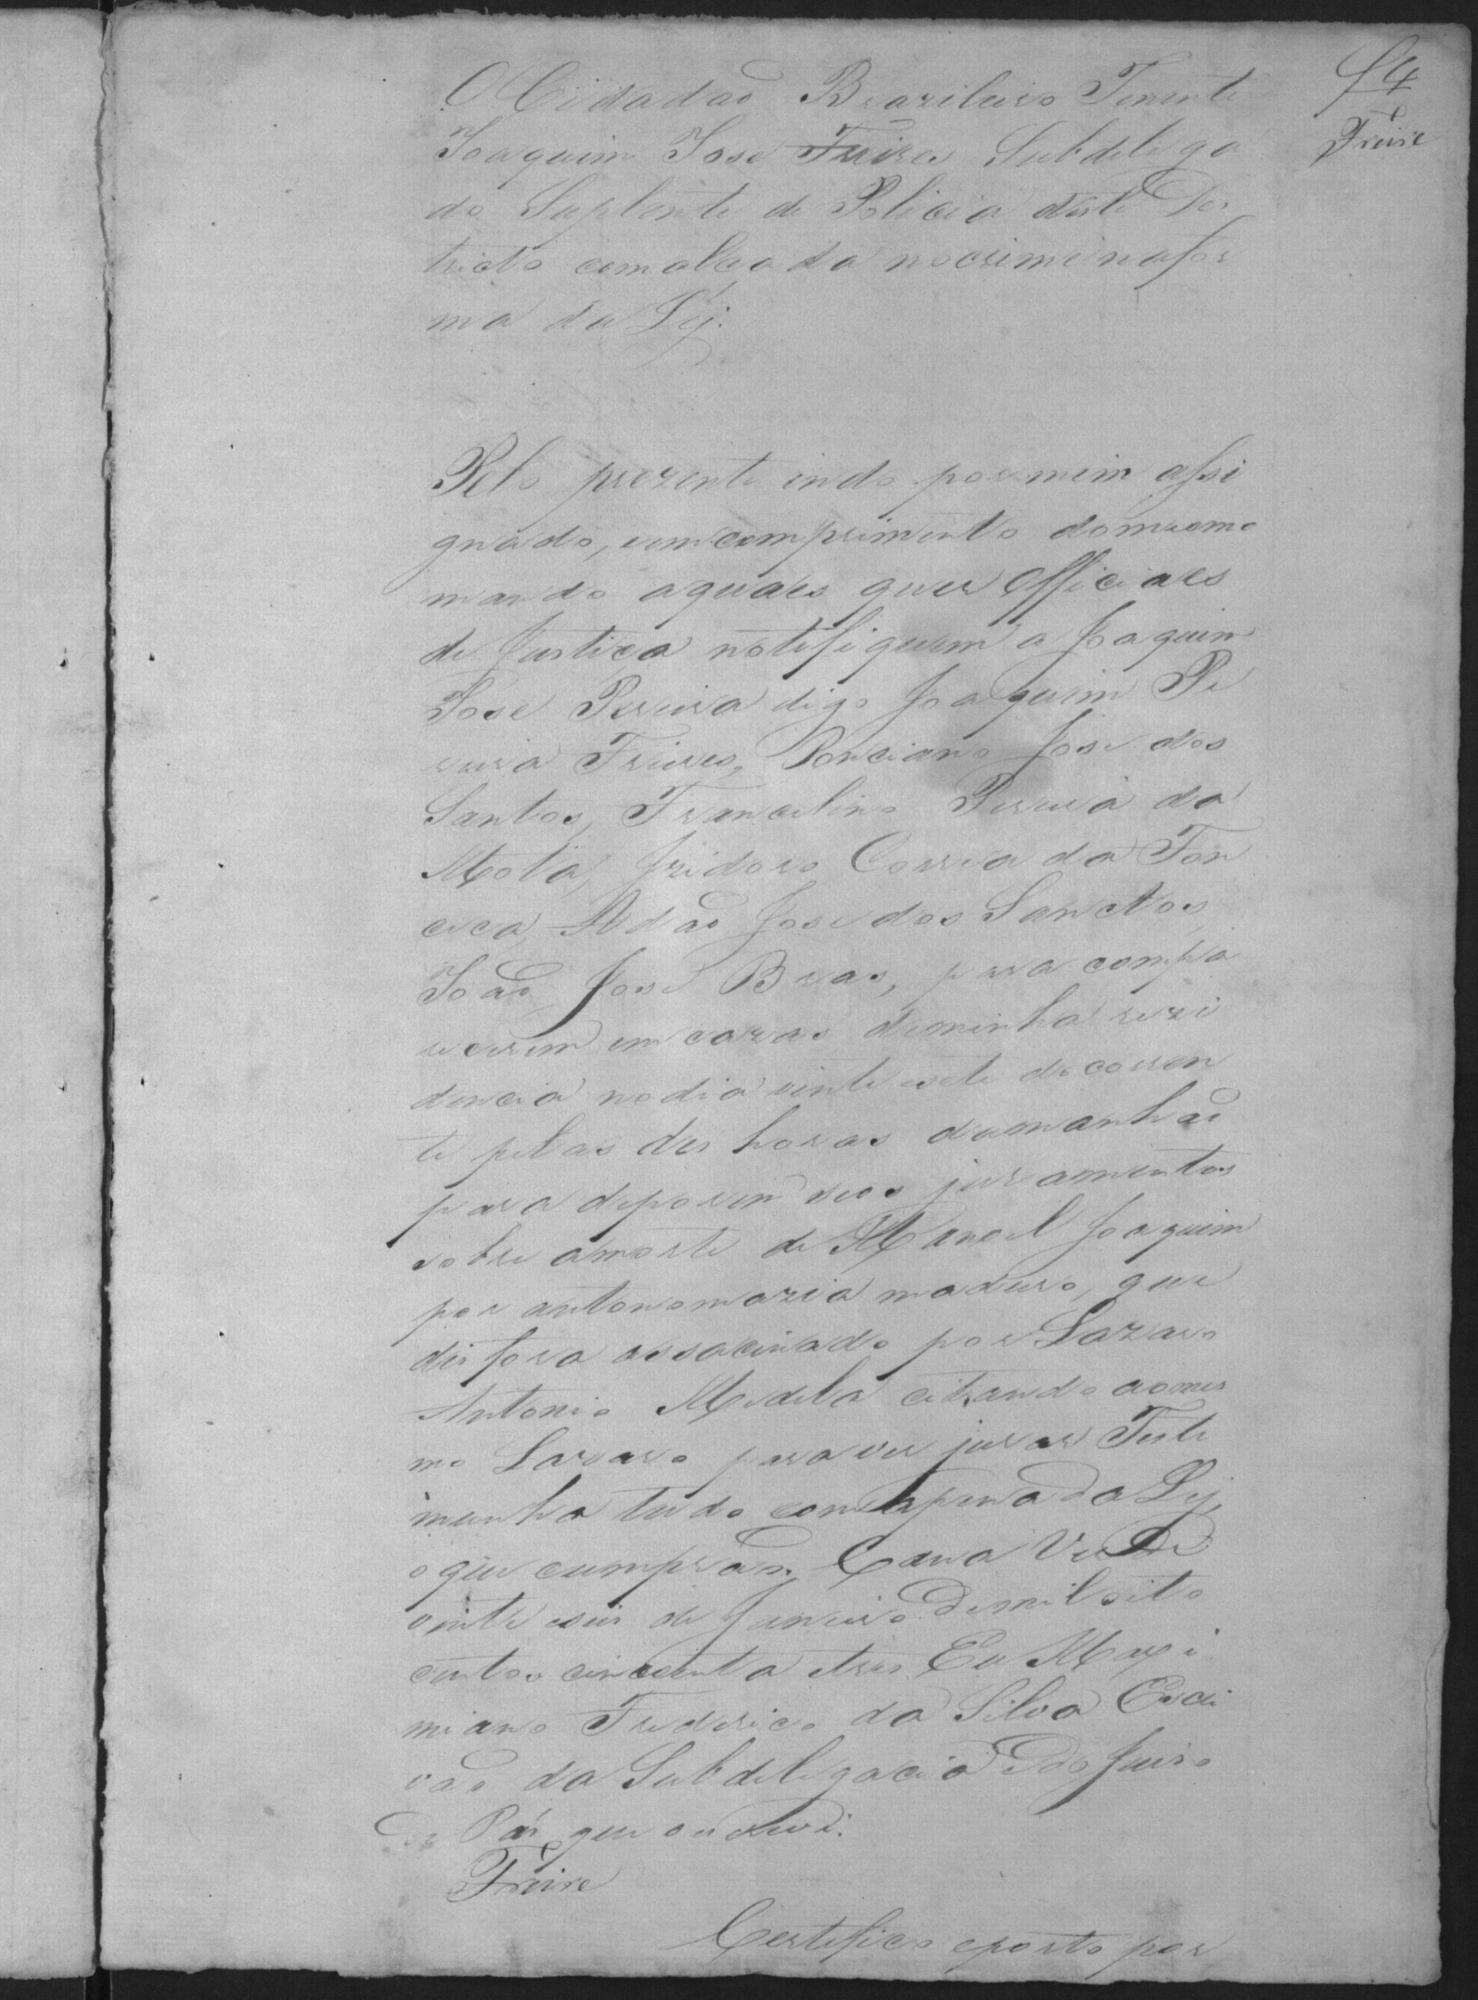 f 4
Freire
O Cidadaõ Brazileiro Tenente
Joaquim Jose Freires Subdelega
do Suplente de Policia deste Des
tricto com alçada no crime na for
ma da Lej.
Pelo prezente indo por mim assi
gnado, eem comprimento do mesmo
mando a quaes quer Officiaes
de Justiça notefiquem a Joaquim
Jose Pereira digo Joaquim Pe
reira Freires, Ponciano Jose dos
Santos, Francelino Pereira da
Mota, Izidoro Correa da Fon
ceca, Adaõ Jose dos Sanctos,
Joaõ Jose Bras, para compa
recerem em cazas deminha rezi
dencia no dia vinte esete do corren
te pelas des horas damanhaã
para deporem seos juramentos
sobre amorte de Manoel Joaquim
por antonomazia maduro, que
dis fora assacinado por Lazaro
Antonio Medela citando aomes
mo Lazaro para ver jurar Teste
munha tudo com a pena da Lej,
oque cumpraõ. Cana Verde
vinte eseis de Janeiro de mil oito
centos cincoenta etres Eu Maxi
miano Frederico da Silva Escri
vaõ da Subdelegacia edo Juizo
de Pás que o escrevi.
Freire
Certifico eporto por